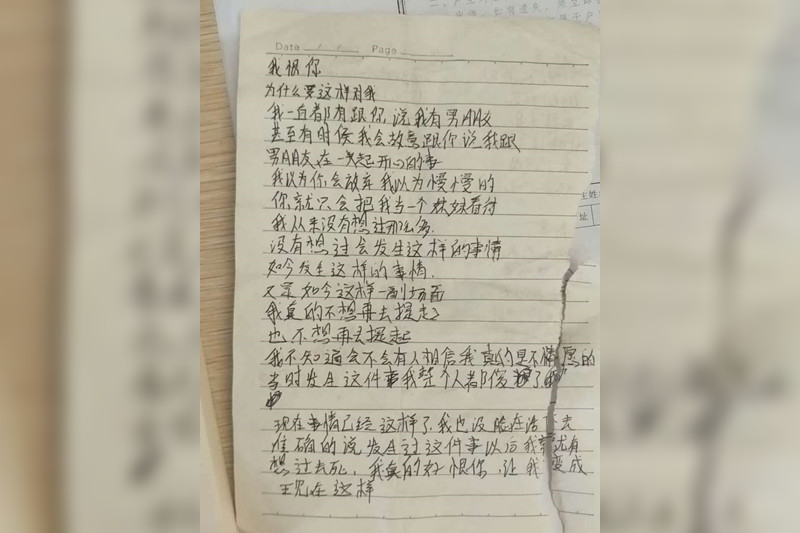 Date / / Page
我恨你
为什么要这样对我
我一直都有跟你说我有男朋友
甚至有时候我会故意跟你说我跟
男朋友在一起开心的事
我以为你会放弃我以为慢慢的
你就只会把我当一个妹妹看待
我从来没有想过那么多.
没有想过会发生这样的事情
如今发生这样的事情.
又是如今这样一副场面
我真的不想再去提起
也不想再去提起
我不知道会不会有人相信我真的是不情愿的
当时发生这件事我整个人都傻了
现在事情已经这样了.我也没脸在活下去
准确的说发生过这件事以后我就有
想过去死,我真的好恨你.让我变成
现在这样
主姓
址